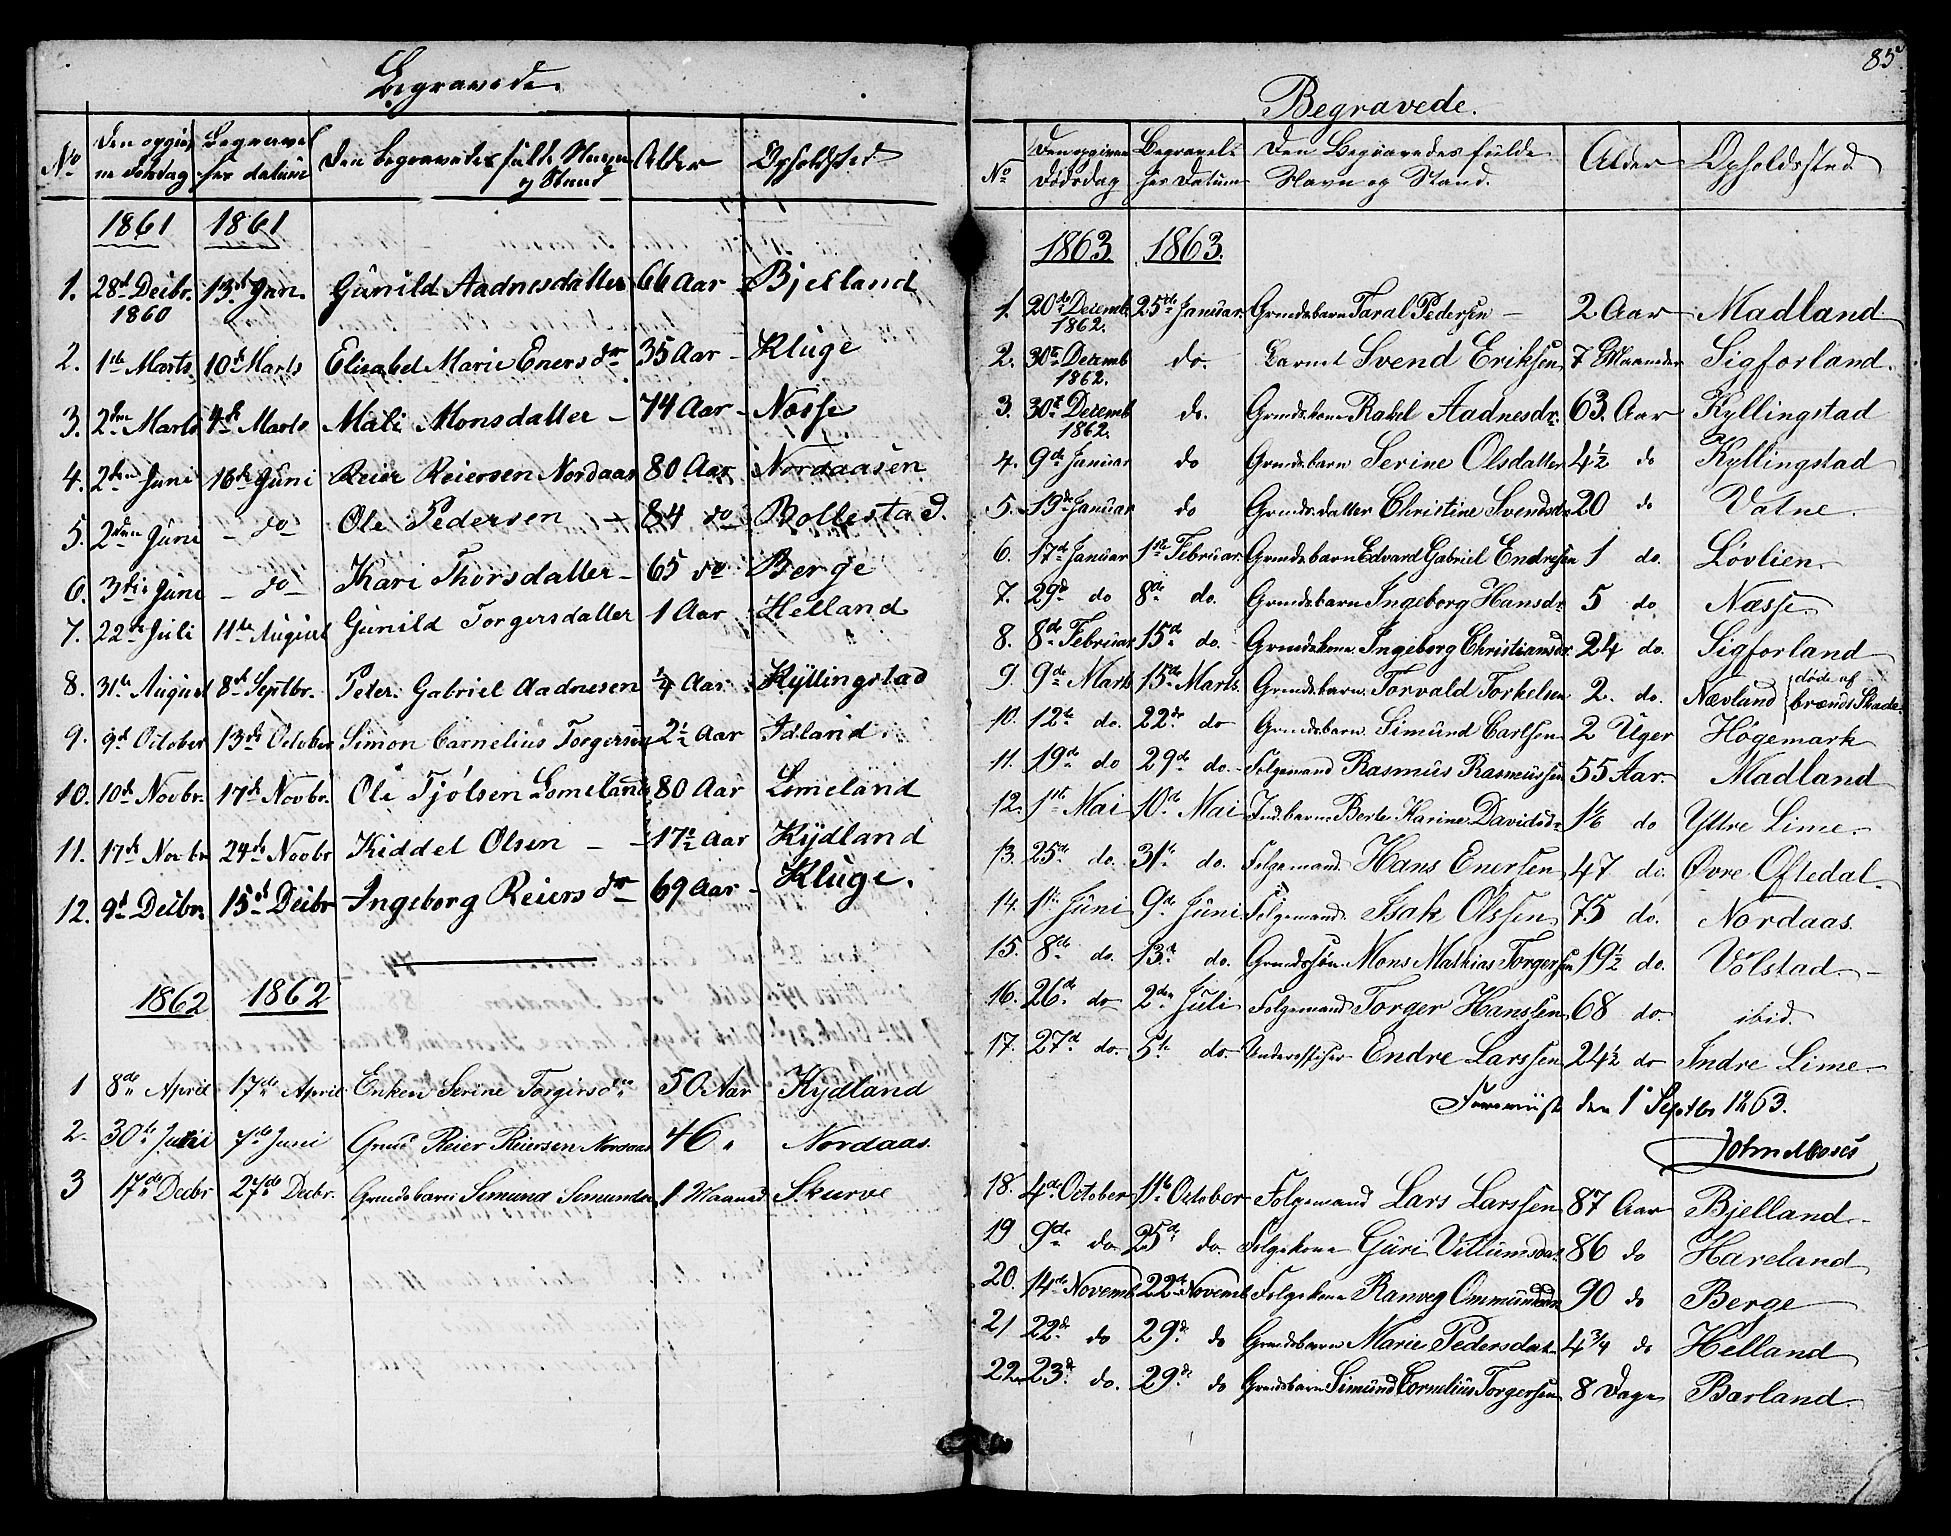 Begravede.
No Den opgiv- Begravel- Den begravedes fulde Navn Alder Opholdsted
ne Dødsdag ses datum og Stand
1861 1861
1. 28de Decbr. 13de Jan. Gunild Aadnesdatter 66 Aar Bjelland
1860
2. 1ste Marts. 10de Marts Elisabet Marie Enersdr 35 Aar - Kluge
3. 2den Marts 4de Marts Mali Monsdatter - 74 Aar - Næsse
4. 2den Juni 16de Juni Reier Reiersen Nordaas 80 Aar Nordaasen
5. 2den Juni - do - Ole Pedersen - 84 do Bollestad.
6. 3die Juni - do - Kari Thorsdatter - 65 do Berge
7. 22de Juli 11te August Gunild Torgersdatter 1 Aar Helland
8. 31te August 8de Septbr. Peter Gabriel Aadnesen ¼ Aar Kyllingstad
9. 9de October 13de October Simon Cornelius Torgersen 2½ Aar Idland.
10. 10de Novbr. 17de Novbr. Ole Tjølsen Lomeland 80 Aar Lomeland
11. 17de Novbr 24de Novbr Kiddel Olsen - - 17½ Aar Kydland
12. 9de Decbr. 15de Decbr Ingeborg Reiersdr 69 Aar - Kluge.
1862 1862
1 8de April 17de April Enken Serine Torgersdr 50 Aar Kydland
2. 30te Juni 7de Juni Grmd Reier Reiersen Nordaas 46 " Nordaas.
3 17de Decbr 27de Decbr. Grmdsbarn Simund Simundsen 1 Maaned Skurve
85
Begravede.
No Den opgivne Begravels- Den Begravedes fulde Alder Opholdssted
Dødsdag ses Datum Navn og Stand.
1863 1863.
1. 20de Decemb. 25de Januar. Grmdsbarn Taral Pedersen - 2 Aar Madland
1862.
2. 30te Decemb do. Barnet Svend Eriksen 7 Maaneder Sigforland.
1862.
3. 30te Decemb do. Grmdskone Rakel Aadnesdr. 63. Aar Kyllingstad
1862.
4. 9de Januar do Grmdsbarn Serine Olsdatter 4½ do Kyllingstad
5. 19de Januar do Grmdsdatter Christine Svendsdr 20 do Vatne.
6. 17de Januar 1ste Februar. Grmdsbarn Edvard Gabriel Endresen 1 do. Løvlien.
7. 29de do 8de do. Grmdsbarn Ingeborg Hansdr 5 do Næsse.
8. 8de Februar 15de do. Grmdskone Ingeborg Christiansdr. 24 do. Sigforland
9. 9de Marts 15de Marts. Grmdsbarn Torvald Torkelsen 2. do. Nævland {døde af
brændt Skade.
10. 12te do. 22de do Grmdsbarn Simund Carlsen 2 Uger Høgemark
11. 19de do 29de do. Folgemand Rasmus Rasmussen 55 Aar. Madland
12. 1ste Mai 10de Mai Indbarn Berte Karine Davidsdr 1⅙ do Yttre Lime.
13. 25de do. 31te do. Folgemand Hans Enersen 47 do. Øvre Oftedal.
14. 1ste Juni 9de Juni Folgemand Isak Olssen 75 do. Nordaas.
15. 8de do. 13de do. Grmdssøn Mons Mathias Torgersen 19½ do. Vølstad.
16. 26de do 2den Juli Folgemand Torger Hanssen 68 do. ibid.
17. 27de do. 5te do. Underofficer Endre Larssen 24½ do Indre Lime.
den 1 Septbr 1863.
18. 4de October 11te October Folgemand Lars Larssen 87 Aar Bjelland.
19 9de do 25de do Folgekone Guri Villumsdat. 86 do Hareland
20. 14de Novemb. 22de Novemb. Folgekone Ranveg Ommundsdr 90 do Berge
21 22de do 29de do Grmdsbarn Marie Pedersdatr 4¾ do Helland
22. 23de do. 29de do Grmdsbarn Simund Cornelius Torgersen 8 Dage Barland.